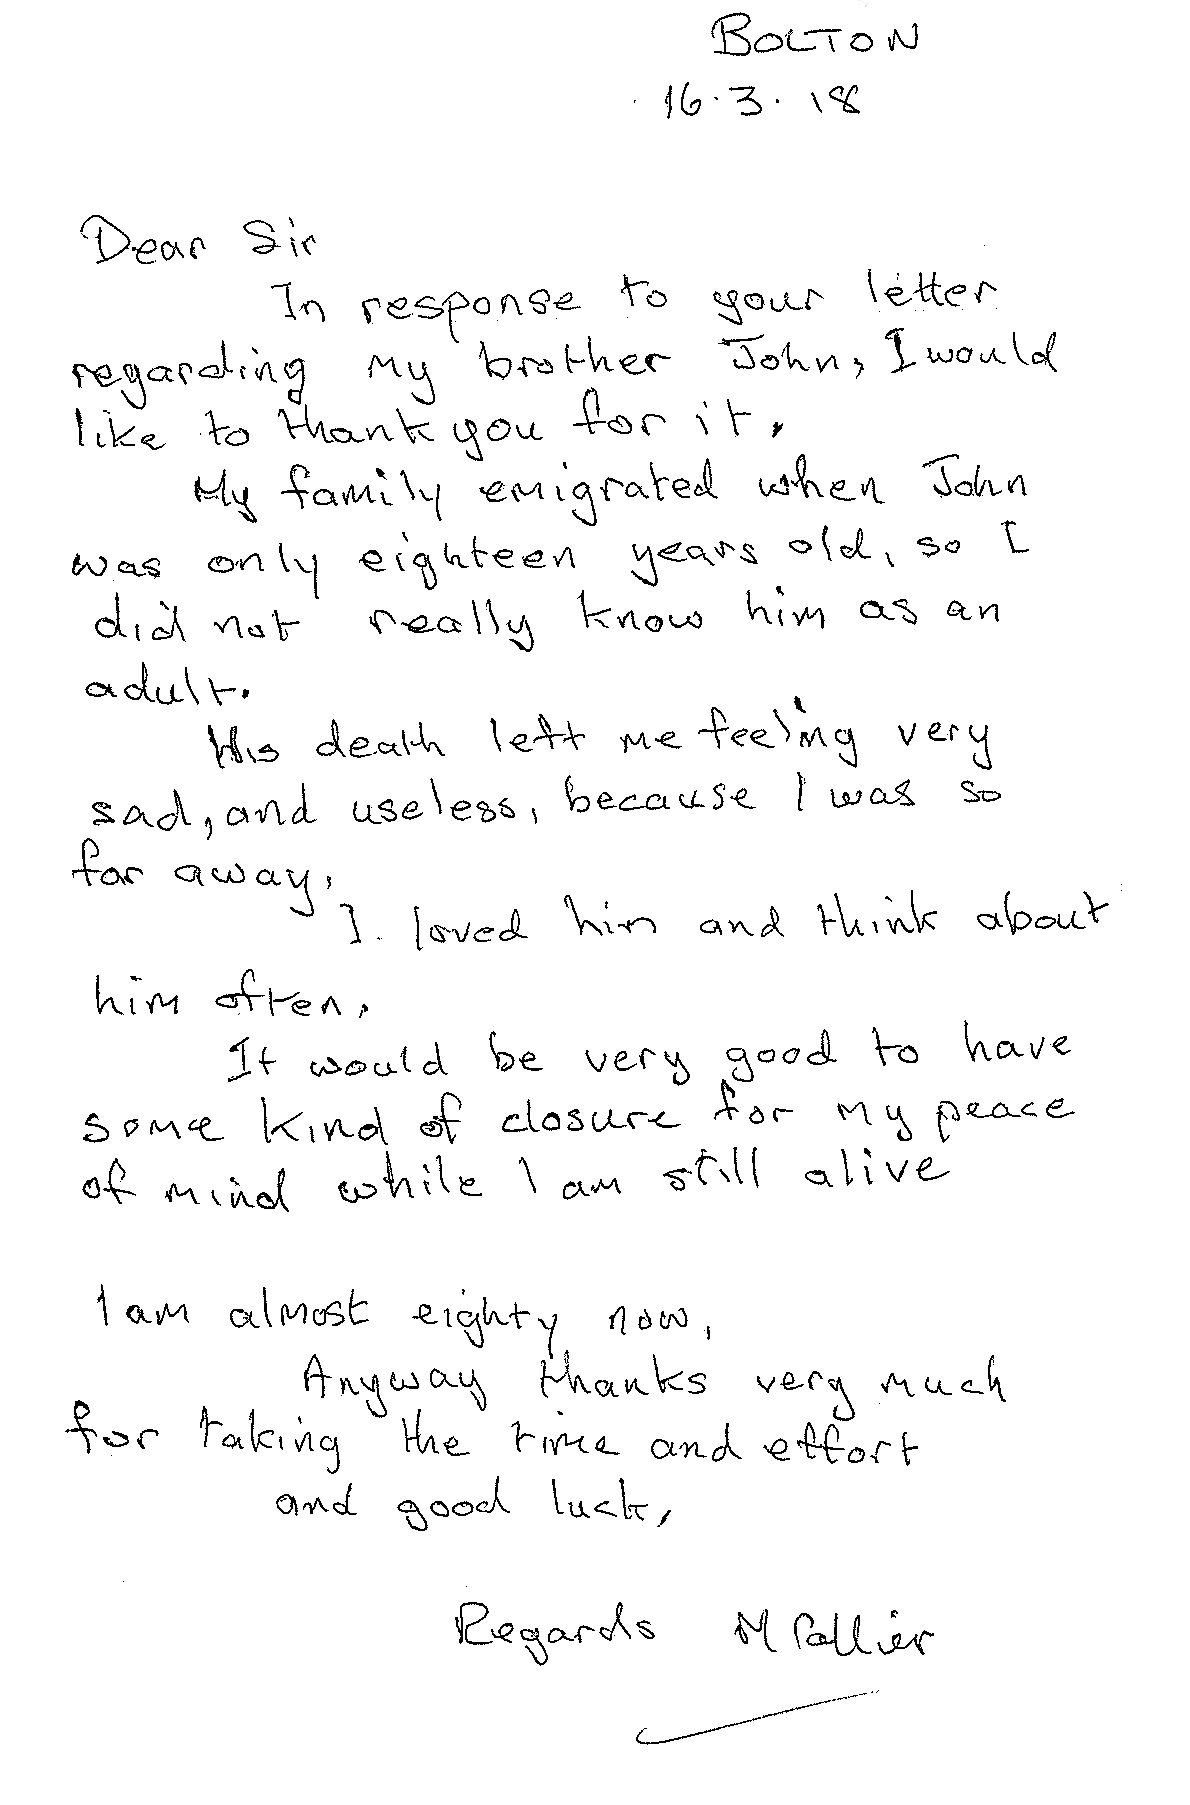 BOLTON
16.3.18
Dear Sir
In response to your letter
regarding my brother John, I would
like to thank you for it.
My family emigrated when John
was only eighteen years old, so I
did not really know him as an
adult.
His death left me feeling very
sad, and useless, because I was so
far away,
I. loved him and think about
him often,
It would be very good to have
some kind of closure for my peace
of mind while I am still alive
I am almost eighty now,
Anyway thanks very much
for taking the time and effort
and good luck,
Regards M